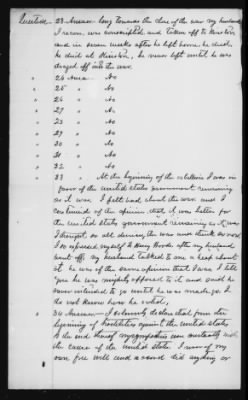 23 Answer. Long towards the close of the war my husband
I recon, was conscripted and taken off to
and in seven weeks after he left home he died,
he died at he never left until he was
draged off into the war.
" 24 Answ. " No
" 25 " No
" 26 " No
" 27 " No
" 28 " No
" 29 " No
" 30 " No
" 31 " No
" 32 " No
" 33 " At the begining of the rebellion I was in
favor of the united states government remaining
as it was. I felt bad about the war. and I
continued of the opinion that it was better for
the united states government remaining as it was
I thought so all during the war and think so now
I so expressed myself to after my husband
went off. my husband talked to me a heap about
it he was of the same opinion that I was. I tell
you he was mightly opposed to it and said he
never intended to go until he was made go. I
do not know how he voted,
" 34 Answer — I solemnly declare that from the
begining of hostilities against the united states
to the end thereof my sympathies were constantly with
the cause of the united states I never of my
own free will and accord did anything or